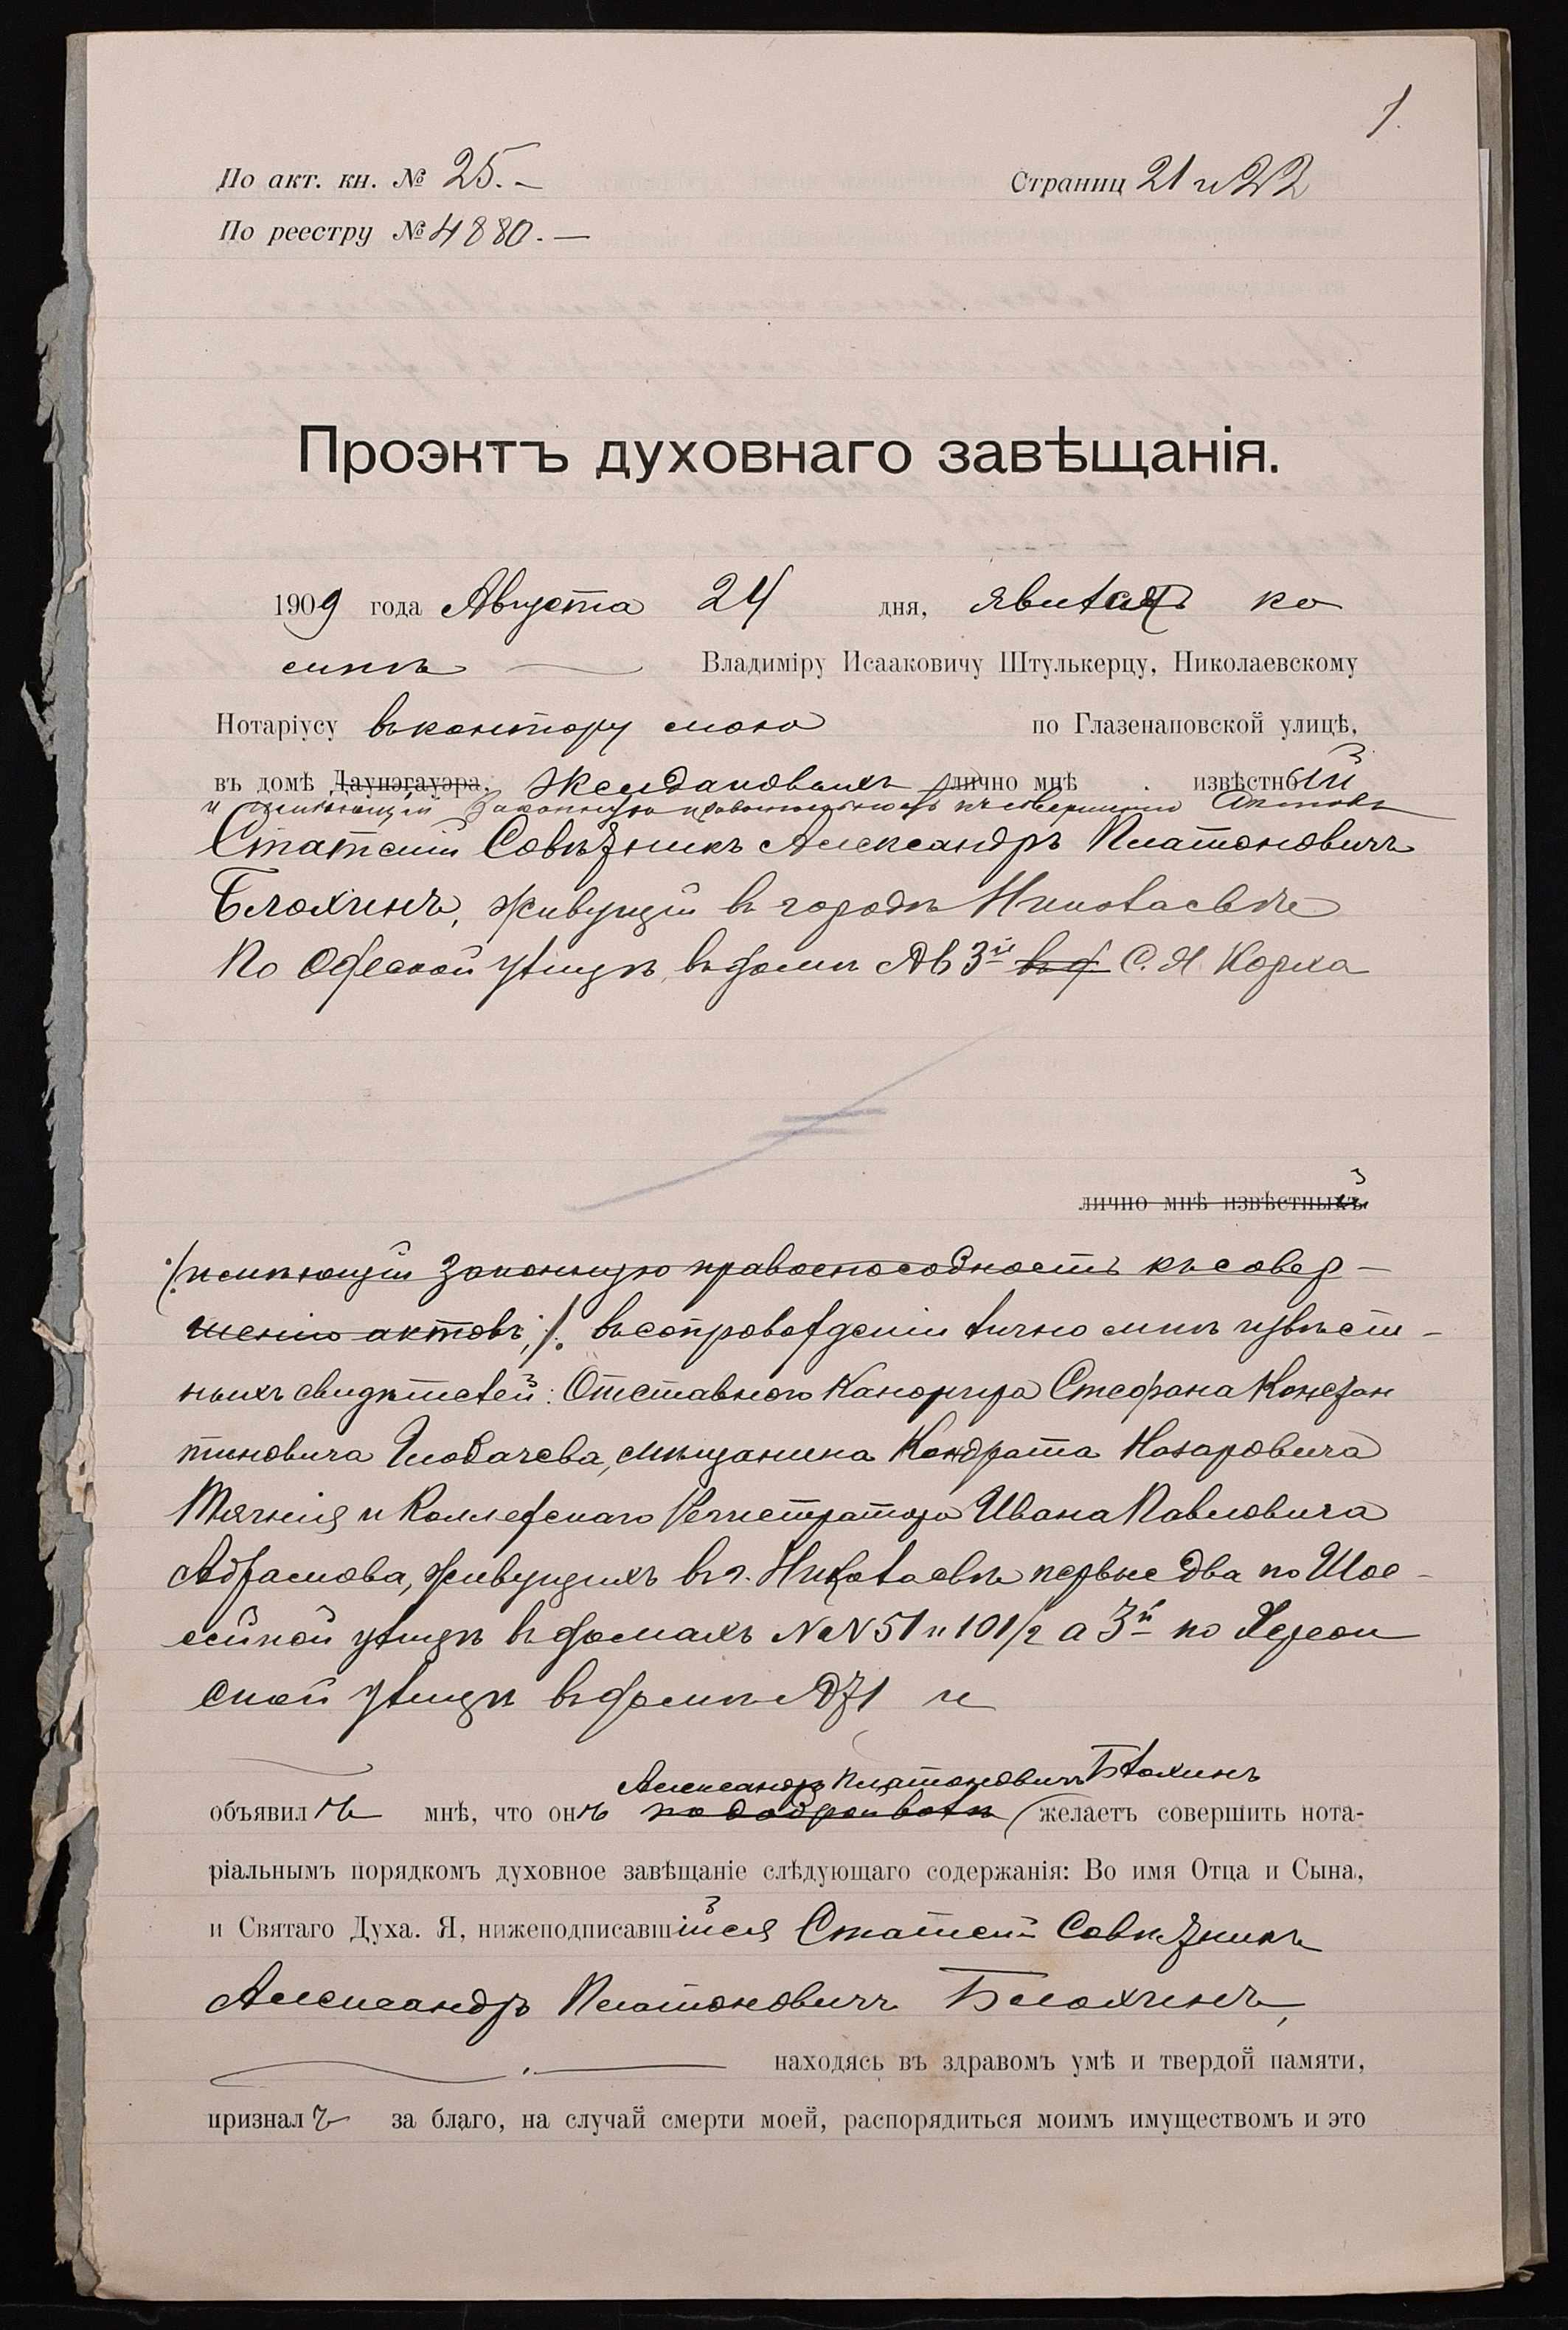 1.
По акт. кн. № 25.–
Страниц 21 и 22
По реестру № 4880.–
Проэктъ духовнаго завѣщанія.
1909 года Августа 24 дня, явился ко
мнѣ Владиміру Исааковичу Штулькерцу, Николаевскому
Нотаріусу въ контору мою по Глазенаповской улицѣ,
въ домѣ Даунэгауэра, лично мнѣ извѣстный
и имѣющій законную правоспособность къ совершенію актовъ
Статскій Совѣтникъ Александръ Платоновичъ
Блохинъ, живущій въ городѣ Николаевѣ
по Одесской улицѣ, въ домѣ № 3й С. Я. Корха
лично мнѣ извѣстныхъ
имѣющій законную правоспособность къ совер-
шенію актовъ, въ сопровожденіи лично мнѣ извѣст-
ныхъ свидѣтелей: Отставного Канонира Стефана Констан
тиновича Глобачева, мѣщанина Кондрата Назаровича
и Коллежскаго Регистратора Ивана Павловича
Абрамова, живущихъ въ г. Николаевѣ первые два по Шос-
сейной улицѣ въ домахъ №№ 51 и 101/2 а 3й по Херсон
ской улицѣ въ домѣ № 71 и
Александръ Платоновичъ Блохинъ
объявилъ мнѣ, что онъ по доброй волѣ желаетъ совершить нота-
ріальнымъ порядкомъ духовное завѣщаніе слѣдующаго содержанія: Во имя Отца и Сына,
и Святаго Духа. Я, нижеподписавшійся Статскій Совѣтникъ
Александръ Платоновичъ Блохинъ,
находясь въ здравомъ умѣ и твердой памяти,
призналъ за благо, на случай смерти моей, распорядиться моимъ имуществомъ и это